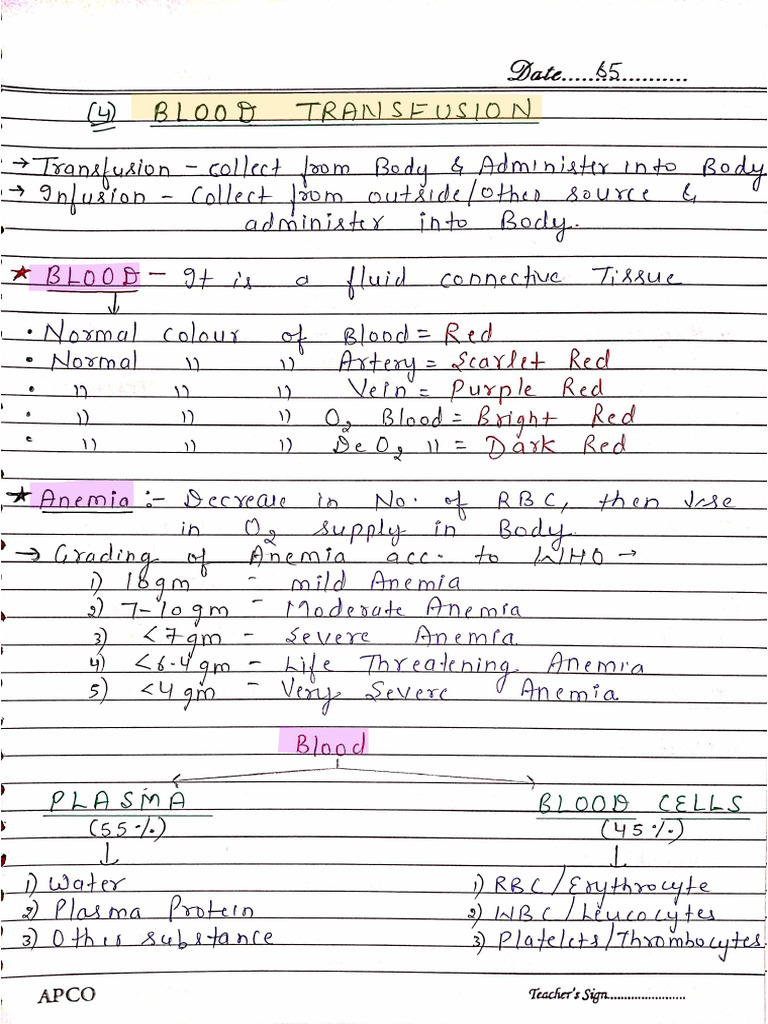 Date......65...........
(4) BLOOD TRANSFUSION
→ Transfusion - collect from Body & Administer into Body
→ Infusion - Collect from outside/other source &
administer into Body.
★ BLOOD - It is a fluid connective Tissue
↓
• Normal colour of Blood = Red
• Normal " " Artery = Scarlet Red
• " " " Vein = Purple Red
• " " " O2 Blood = Bright Red
• " " " DeO2 " = Dark Red
★ Anemia :- Decrease in No. of RBC, then ↓se
in O2 supply in Body.
→ Grading of Anemia acc. to WHO →
1) 10gm - mild Anemia
2) 7-10gm - Moderate Anemia
3) <7gm - Severe Anemia
4) <6.4gm - Life Threatening Anemia
5) <4gm - Very Severe Anemia
Blood
PLASMA BLOOD CELLS
(55%) (45%)
↓ ↓
1) Water 1) RBC/Erythrocyte
2) Plasma Protein 2) WBC/Leucocytes
3) Other substance 3) Platelets/Thrombocytes
APCO Teacher's Sign........................